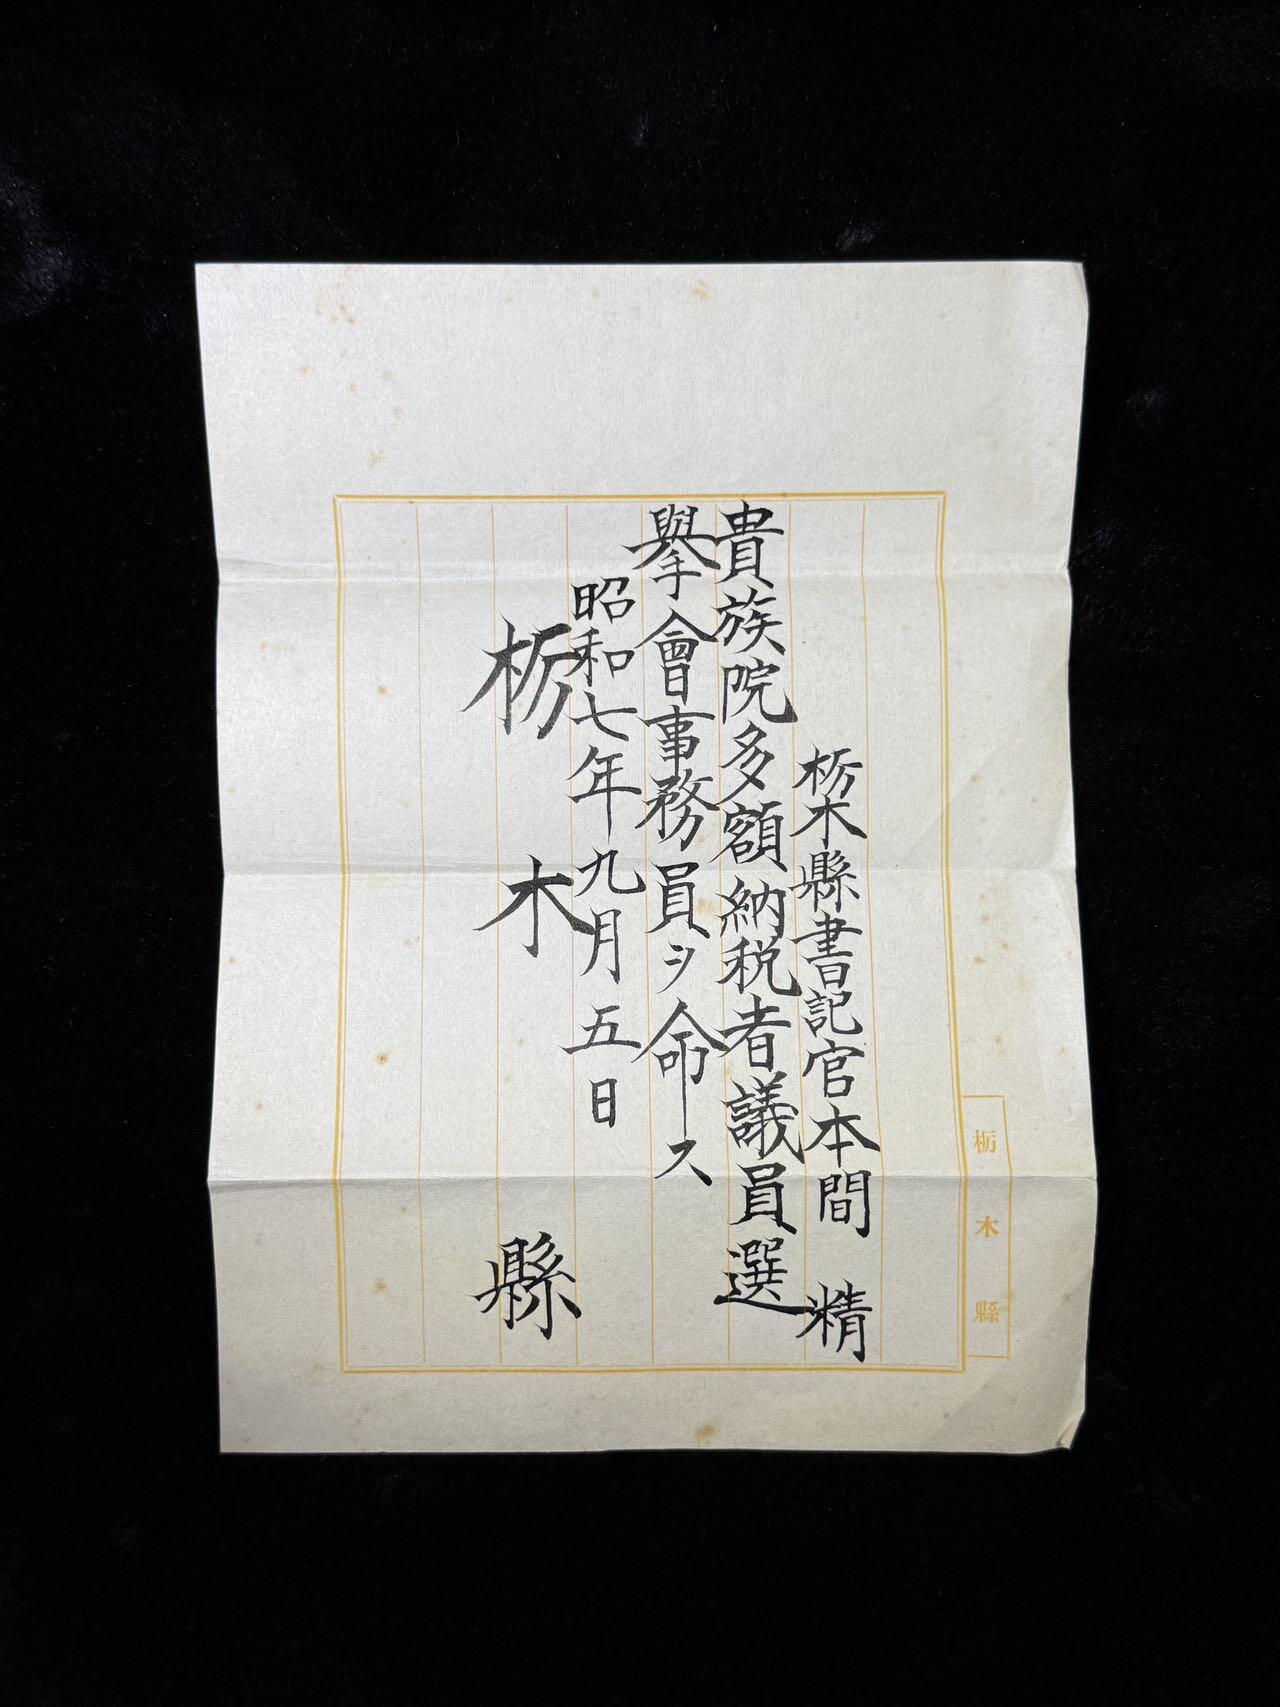 栃木縣書記官本間　精
貴族院多額納税者議員選
擧會事務員ヲ命ス
昭和七年九月五日
栃木縣
栃木縣